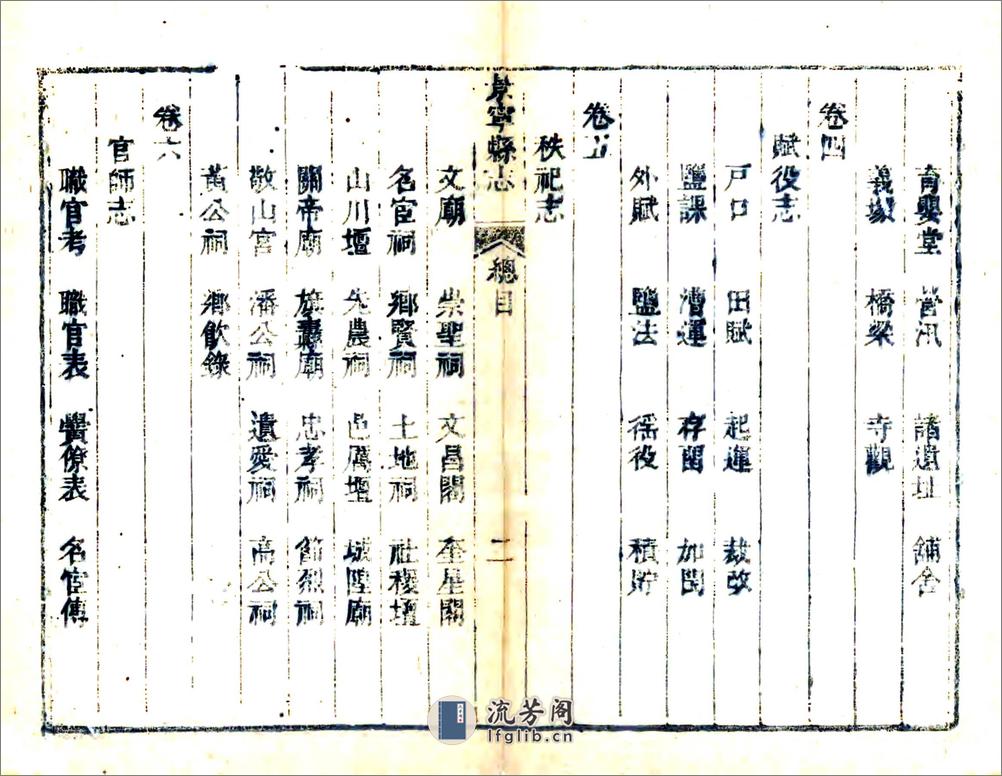 育嬰堂 營汛 諸遺址 舖舍
義塚 橋梁 寺觀
卷四
賦役志
戸口 田賦 起運 裁改
鹽課 漕運 存留 加閏
外賦 鹽法 徭役 積貯
卷五
秩祀志
景寧縣志 總目 二
文廟 崇聖祠 文昌閣 奎星閣
名宦祠 鄉賢祠 土地祠 社稷壇
山川壇 先農祠 邑厲壇 城隍廟
關帝廟 旗纛廟 忠孝祠 節烈祠
敬山宮 潘公祠 遺愛祠 高公祠
黃公祠 鄉飲錄
卷六
官師志
職官考 職官表 黌僚表 名宦傳
流芳阁
lfglib.cn